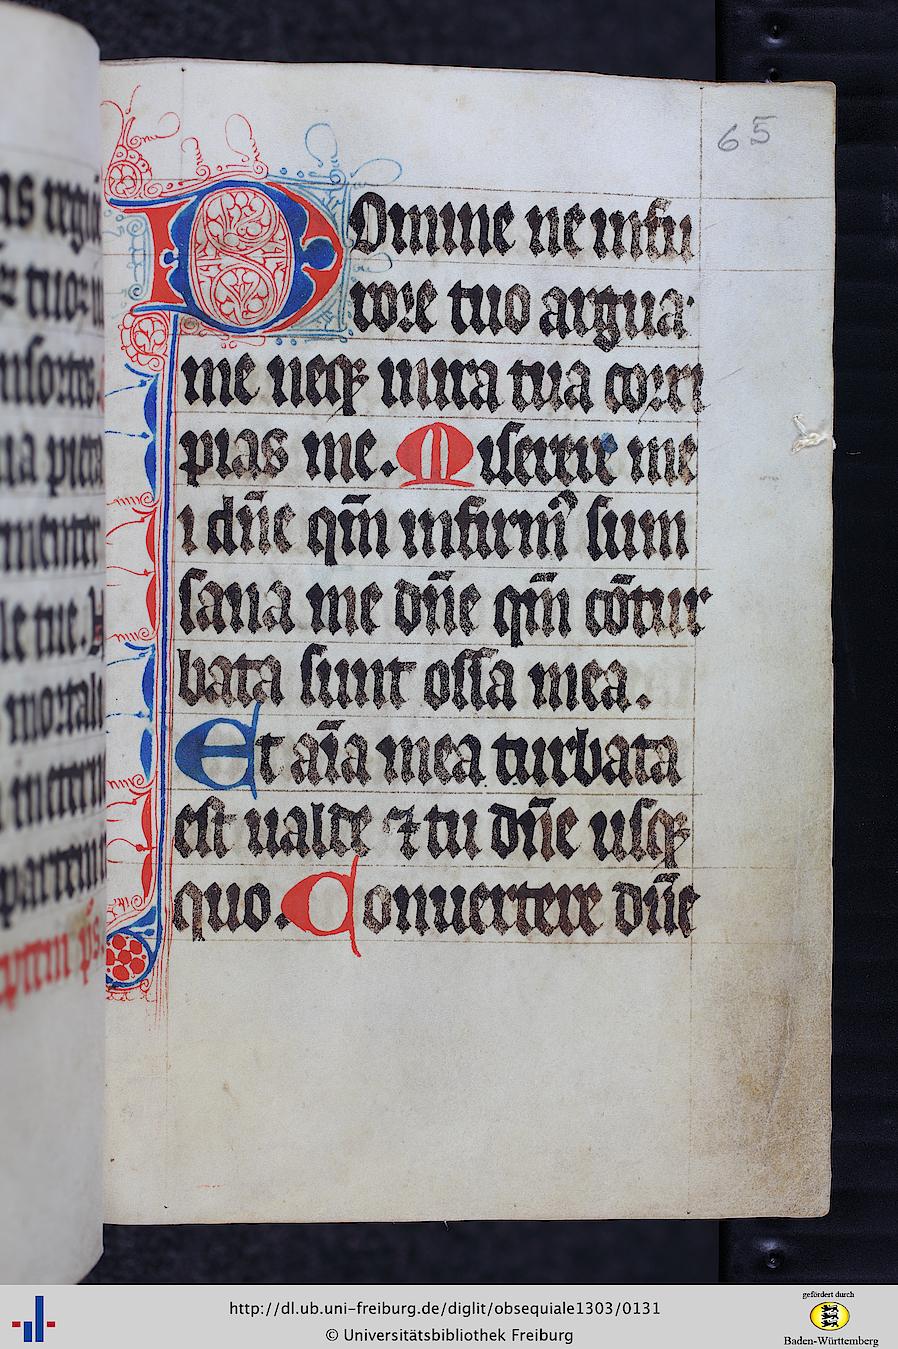 65
Domine ne in fu
rore tuo argua
me neqꝫ in ira tua corri
pias me. Miserere me
i dn̄e qm̄ infirmꝰ sum
sana me dn̄e qm̄ cōtur
bata sunt ossa mea.
Et aīa mea turbata
est ualde ⁊ tu dn̄e usqꝫ
quo. Conuertere dn̄e
http://dl.ub.uni-freiburg.de/diglit/obsequiale1303/0131
© Universitätsbibliothek Freiburg
gefördert durch
Baden-Württemberg